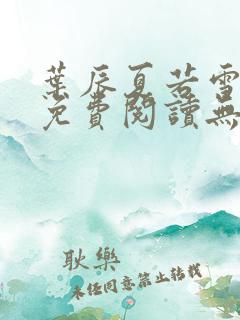 葉辰夏若雪
免費閱讀無
耿樂
未經同意禁止轉載